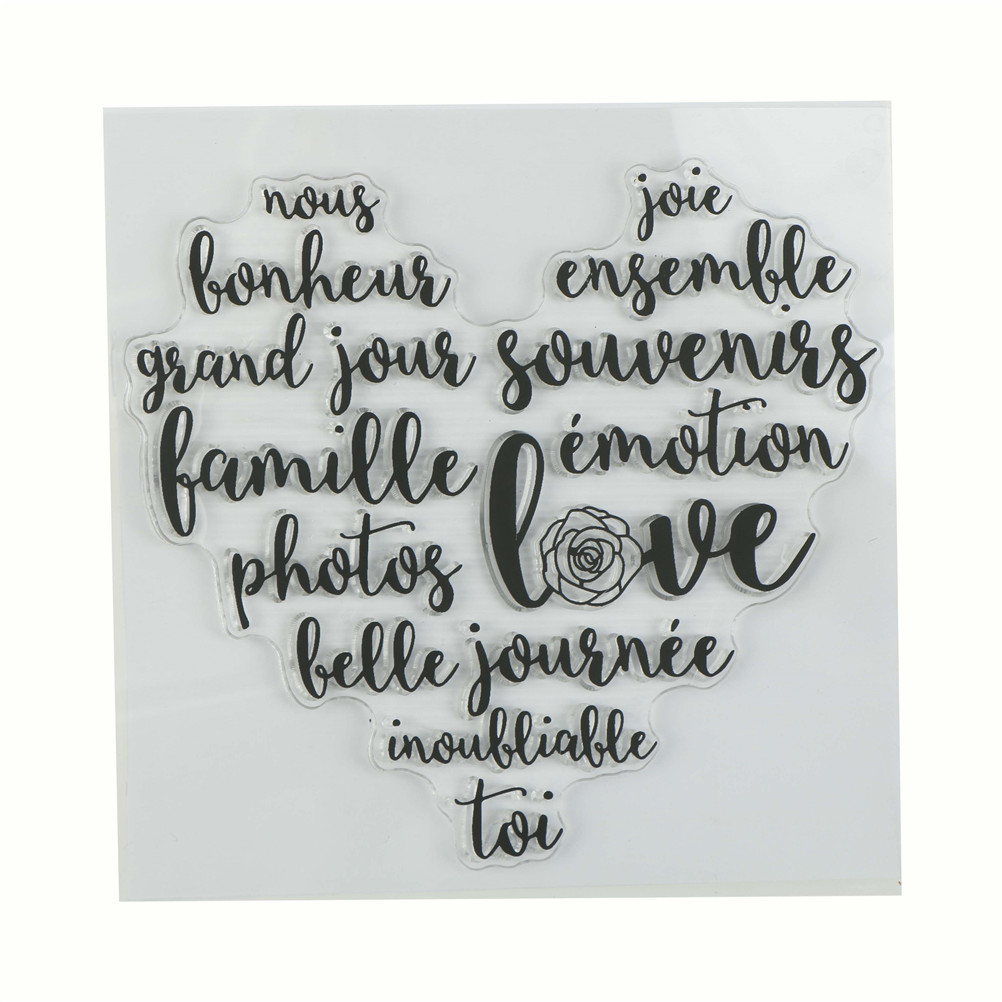 nous
joie
bonheur
ensemble
grand jour
souvenirs
famille
émotion
love
photos
belle journée
inoubliable
toi